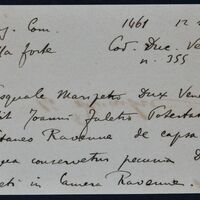 Com. 1461 12
forte Cod. Duc. Ve
n. 355
squale Maripetro Dux Vene
it Joanni Juletro Potestati
taneo Ravenne de capsa
qua conservetur pecunia D
eti in Camera Ravenne.